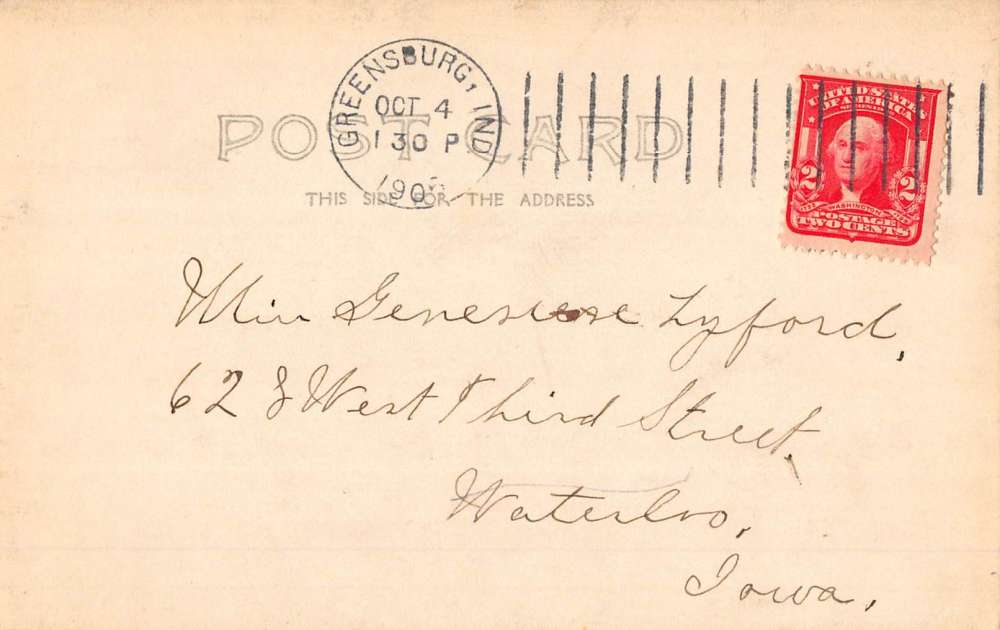 POST CARD
THIS SIDE FOR THE ADDRESS
GREENSBURG, IND
OCT 4
1 30 P
190
UNITED STATES
OF AMERICA
2 2
WASHINGTON
POSTAGE
TWO CENTS
Miss Genevieve Lyford,
628 West Third Street,
Waterloo,
Iowa,